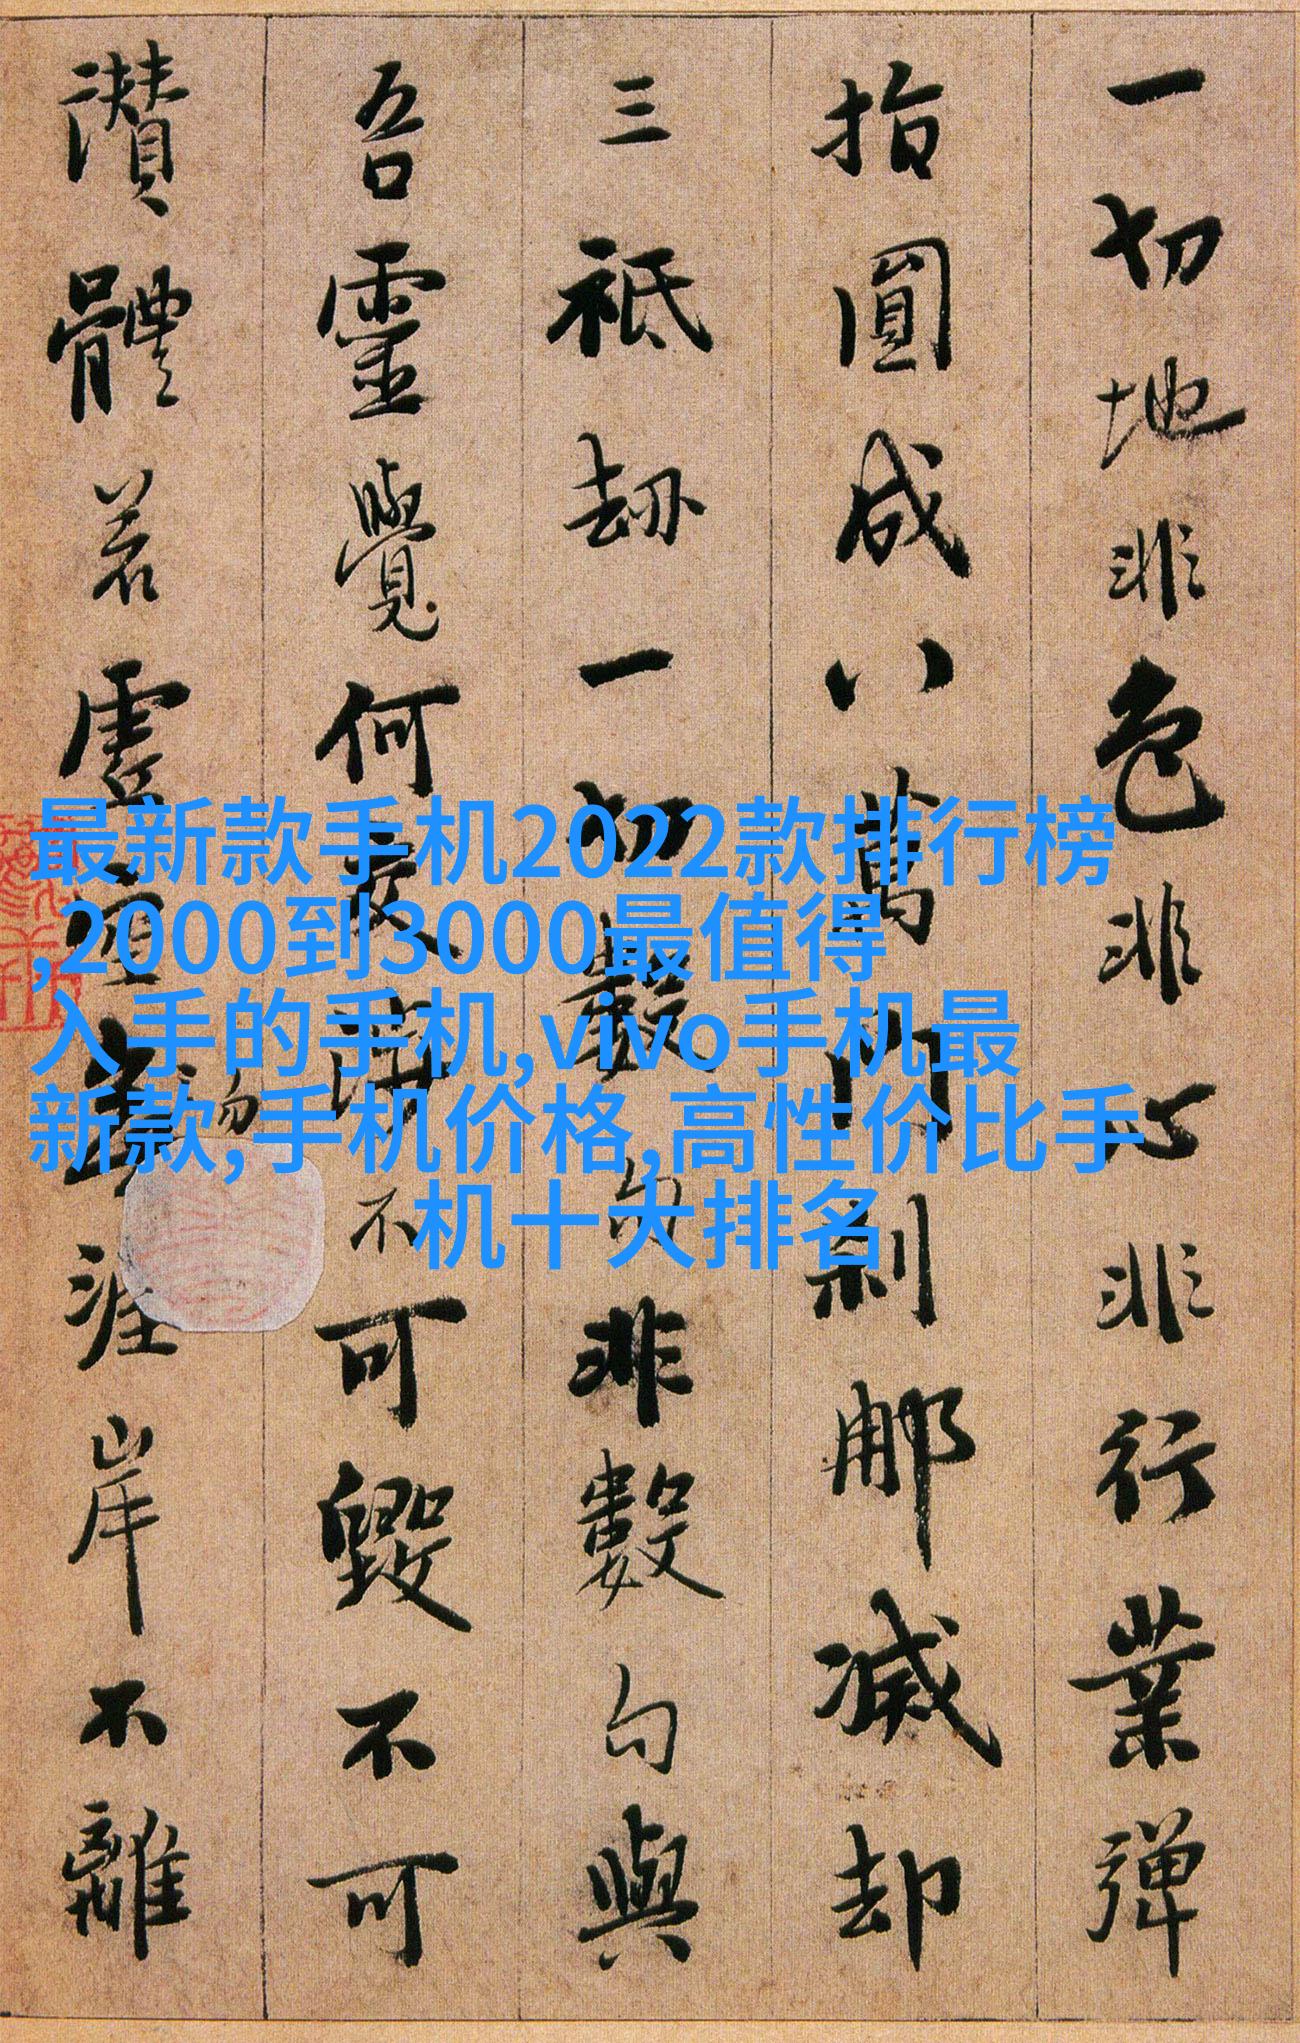 一切地非色非心非行業彈
指圓成八萬門刹那滅却
三祇劫一切數句非數句與
吾靈覺何交涉不可毀不可
讚體若虛空勿涯岸不離
最新款手机2022款排行榜
,2000到3000最值得
入手的手机,vivo手机最
新款,手机价格,高性价比手
机十大排名